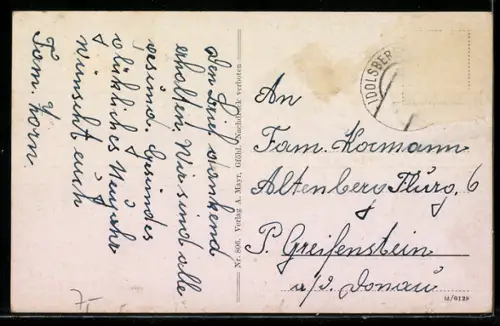 Den Brief dankend
erhalten. Wir sind alle
gesund. Gesundes
glückliches Neujahr
wünscht euch
Fam. Korn
7-
Nr. 806. Verlag A. Mayr, Gföhl. Nachdruck verboten
IDOLSBER
An
Fam. Kormann
Altenberg Flurg. 6
P. Greifenstein
a/d. Donau
12/0128